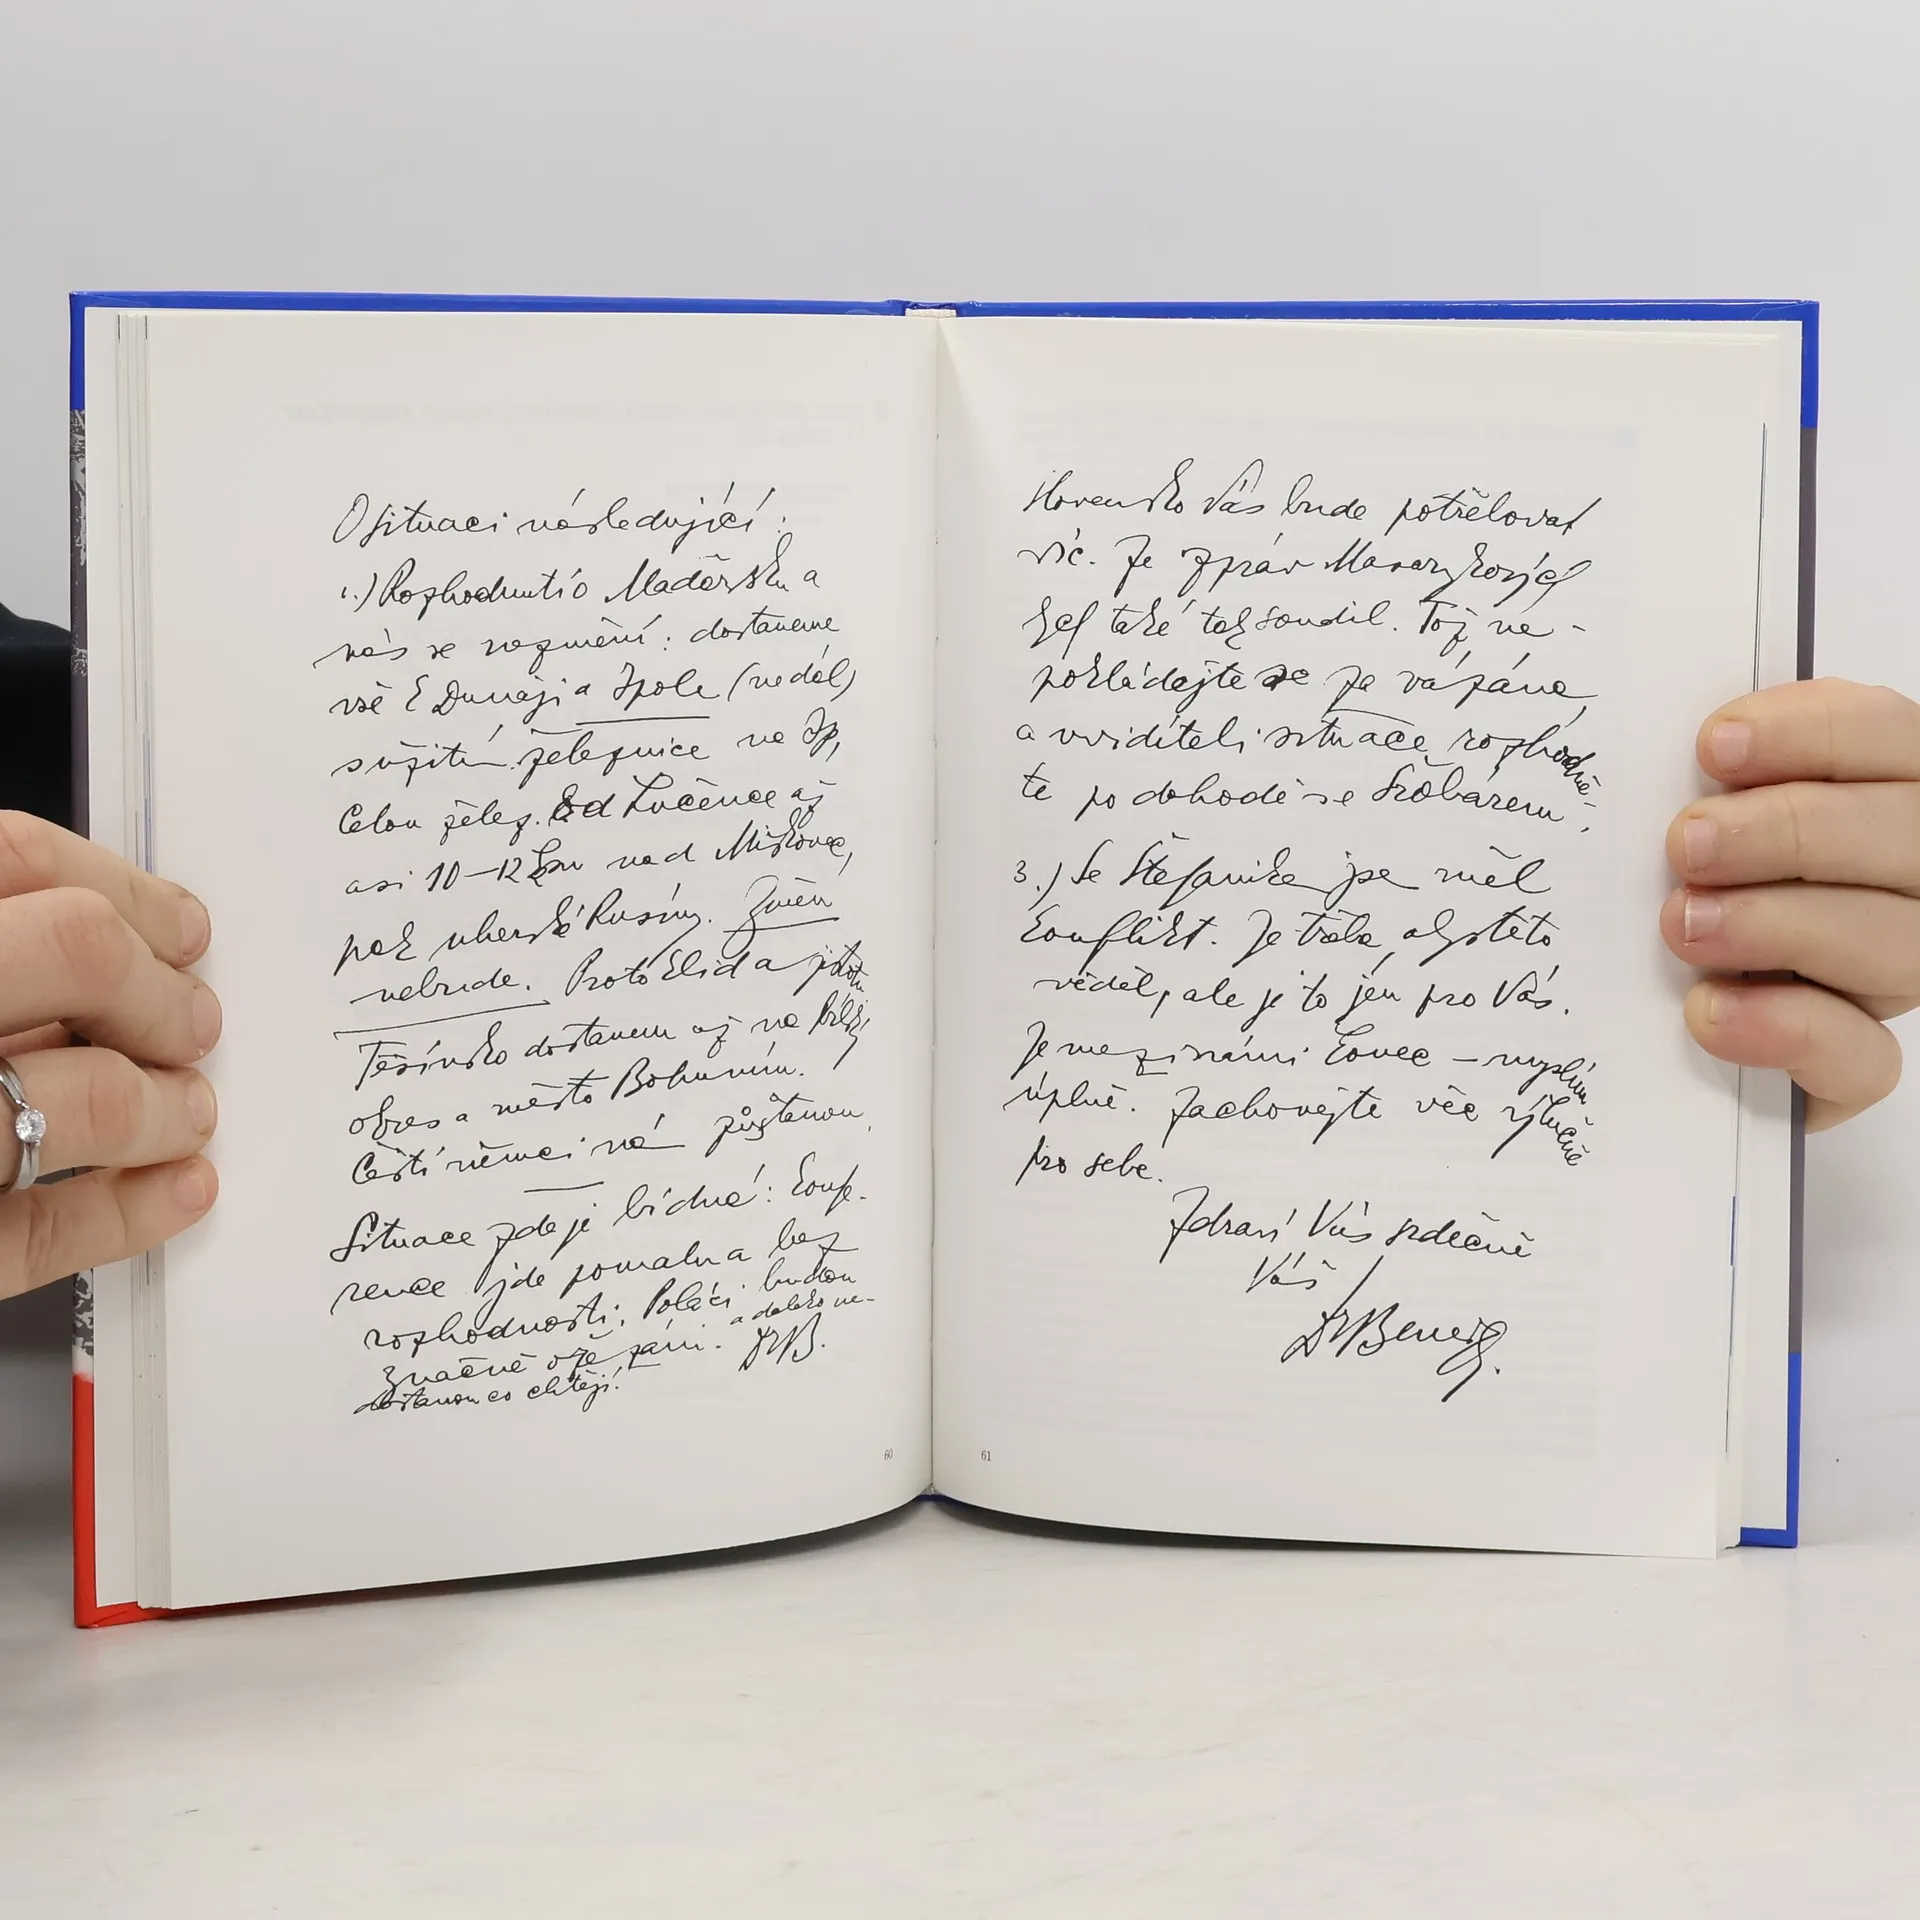 O situaci následující:
1.) Rozhodnutí o Maďarsku a
nás se rozumění: dostaneme
vše k Dunaji a Ipole (ne dál)
s užitím železnice na Ip,
Celou želez. od Lučence až
asi 10–12 km nad Miškovec,
pak uherské Rusíny. Změn
nebude. Proto klid a jistotu
Těšínsko dostanem až na Bílský
okres a město Bohumín.
Čeští němci ná zůstanou
Situace zde je bídná: konfe-
rence jde pomalu a bez
rozhodnosti. Poláci budou
značně ořezáni. a daleko ne-
dostanou co chtějí! DrB.
60
Slovensko Vás bude potřebovat
víc. Ze zpráv Masarykových
jsem také tak soudil. Tož ne-
pokládejte se za vázána
a uvidíteli situace, rozhodně-
te po dohodě se Šrobárem.
3.) Se Štefanikem jsem měl
konflikt. Je třeba, abyste to
věděl, ale je to jen pro Vás.
Je mezi námi konec – myslím
úplně. Zachovejte věc výlučně
pro sebe.
Zdraví Vás srdečně
Váš
DrBeneš.
61